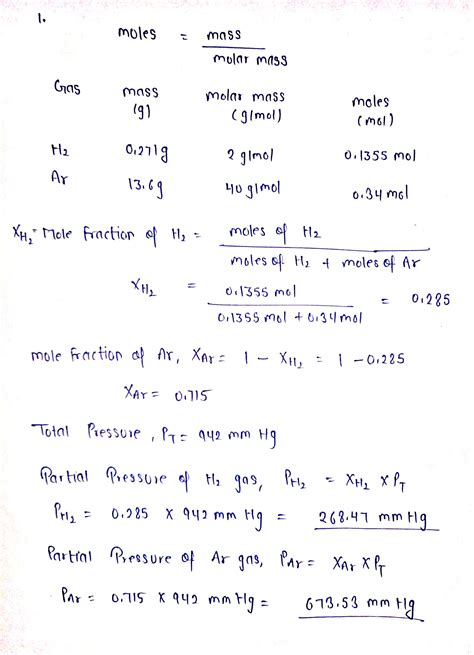 1.
moles = mass
molar mass
Gas mass molar mass moles
(g) (g/mol) (mol)
H2 0.271g 2 g/mol 0.1355 mol
Ar 13.6g 40 g/mol 0.34 mol
XH2 = Mole Fraction of H2 = moles of H2
moles of H2 + moles of Ar
XH2 = 0.1355 mol = 0.285
0.1355 mol + 0.34 mol
mole fraction of Ar, XAr = 1 - XH2 = 1 - 0.285
XAr = 0.715
Total Pressure, PT = 942 mm Hg
Partial Pressure of H2 gas, PH2 = XH2 X PT
PH2 = 0.285 X 942 mm Hg = 268.47 mm Hg
Partial Pressure of Ar gas, PAr = XAr X PT
PAr = 0.715 X 942 mm Hg = 673.53 mm Hg